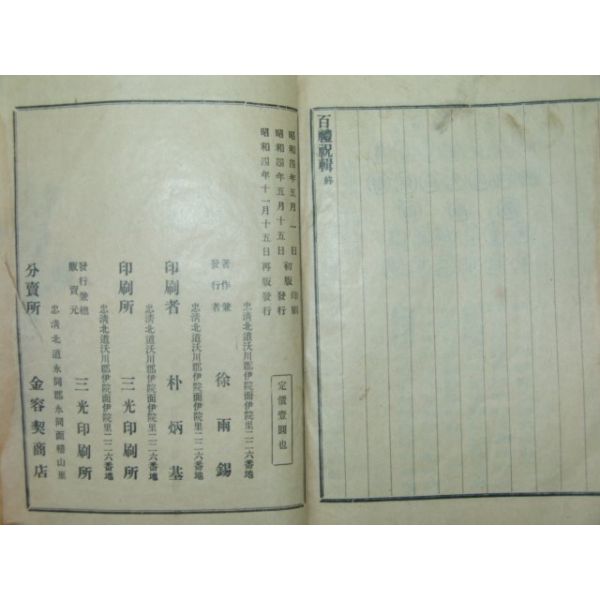 百禮祝輯 終
昭和四年五月一日初版印刷
昭和四年五月十五日初版發行
昭和四年十一月十五日再版發行
定價壹圓也
忠淸北道沃川郡伊院面伊院里二二六番地
著作兼
發行者 徐雨錫
忠淸北道沃川郡伊院面伊院里二二六番地
印刷者 朴炳基
忠淸北道沃川郡伊院面伊院里二二六番地
印刷所 三光印刷所
發行兼總
販賣元 三光印刷所
忠淸北道永同郡永同面稽山里
分賣所 金容契商店